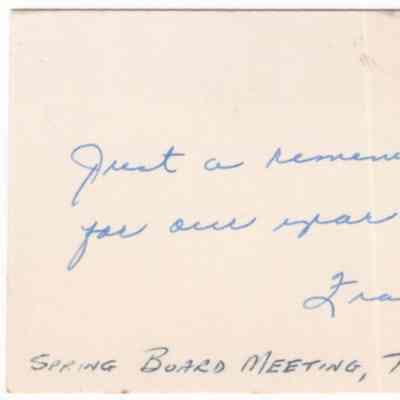 Just a remem
for our year
Fra
SPRING BOARD MEETING, T